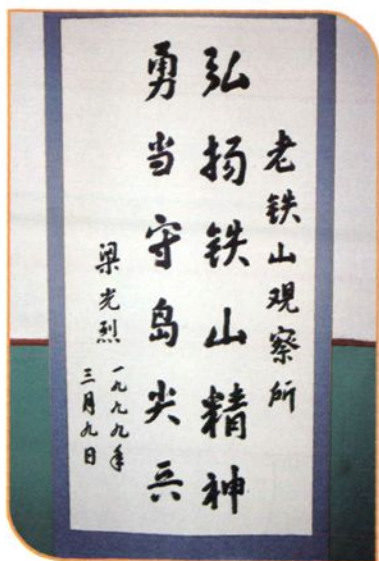 老铁山观察所
弘扬铁山精神
勇当守岛尖兵
梁光烈
一九九九年
三月九日